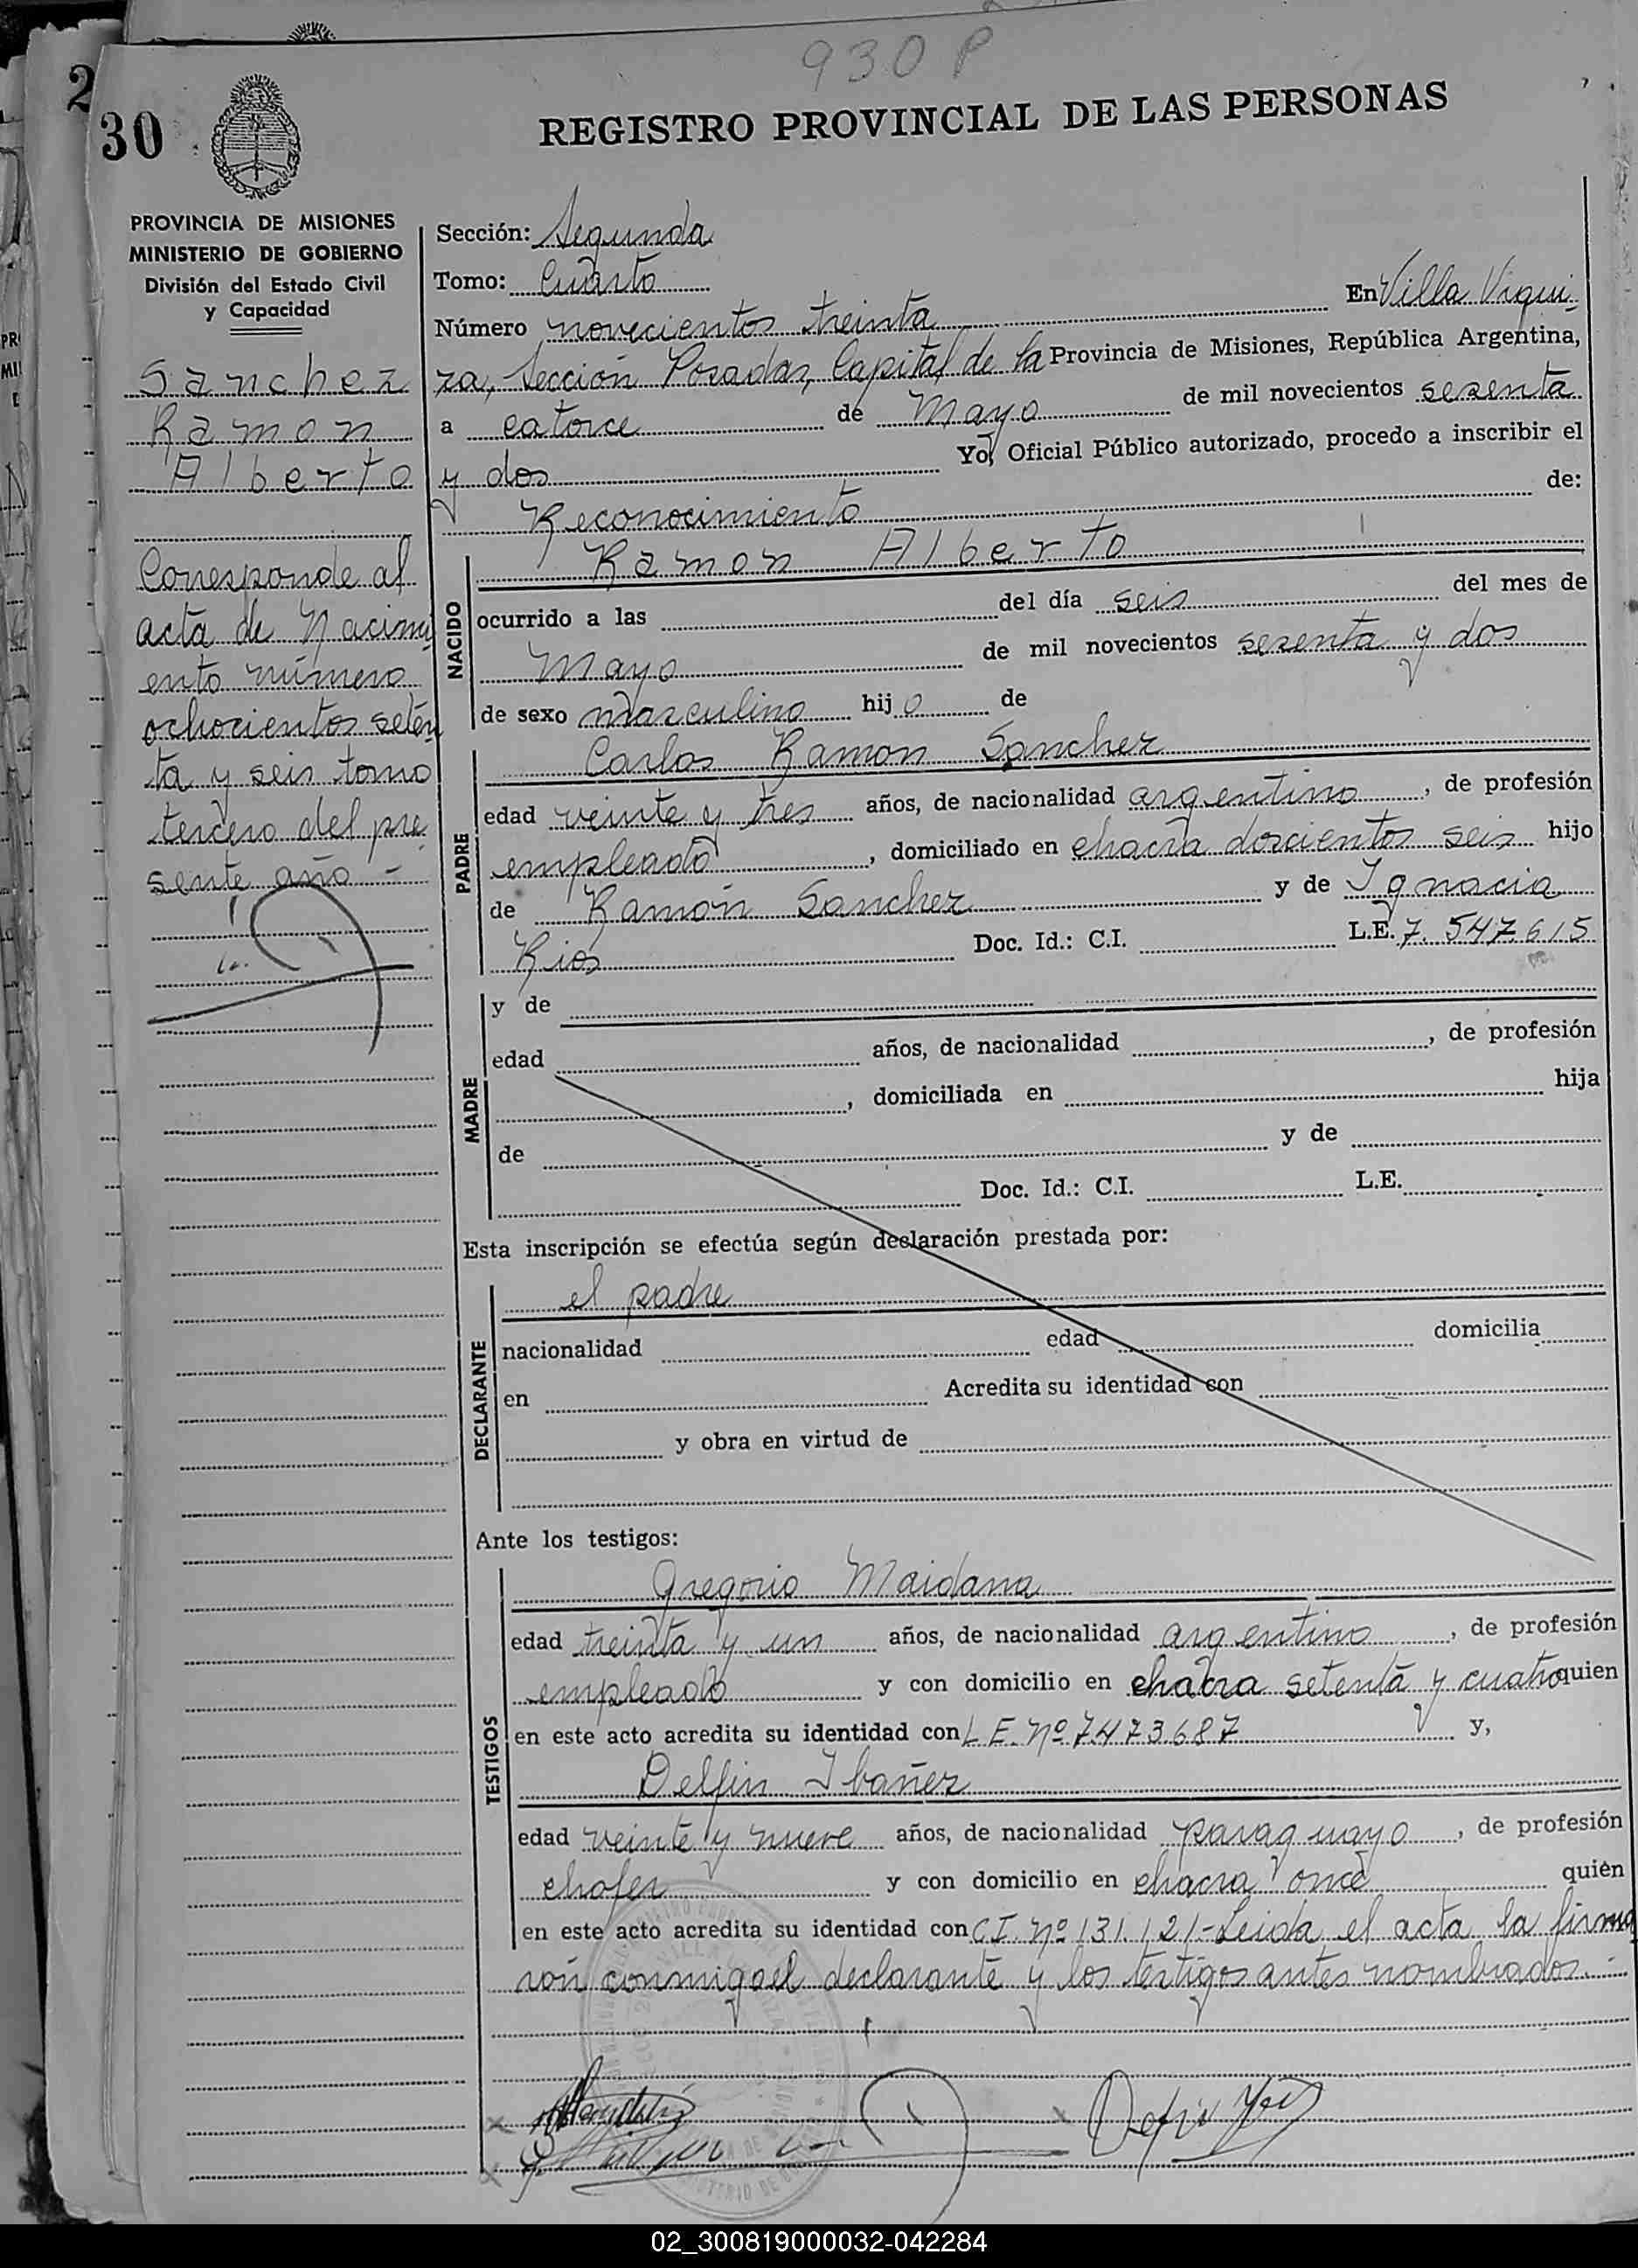 930 P
2
30
REGISTRO PROVINCIAL DE LAS PERSONAS
PROVINCIA DE MISIONES
MINISTERIO DE GOBIERNO
División del Estado Civil
y Capacidad
Sanchez
Ramon
Alberto
Corresponde al
acta de Nacimi
ento número
ochocientos seten
ta y seis tomo
tercero del pre
sente año -
Sección: Segunda
Tomo: Cuarto
Número novecientos treinta En Villa Urqui
za, Sección Posadas, Capital de la Provincia de Misiones, República Argentina,
a catorce de Mayo de mil novecientos sesenta
y dos Yo, Oficial Público autorizado, procedo a inscribir el
Reconocimiento de:
NACIDO
Ramon Alberto
ocurrido a las del día seis del mes de
Mayo de mil novecientos sesenta y dos
de sexo masculino hijo de
PADRE
Carlos Ramon Sanchez
edad veinte y tres años, de nacionalidad argentino, de profesión
empleado, domiciliado en chacra doscientos seis hijo
de Ramón Sanchez y de Ignacia
Rios Doc. Id.: C.I. L.E. 7.547615
MADRE
y de
edad años, de nacionalidad , de profesión
, domiciliada en hija
de y de
Doc. Id.: C.I. L.E.
Esta inscripción se efectúa según declaración prestada por:
DECLARANTE
el padre
nacionalidad edad domicilia
en Acredita su identidad con
y obra en virtud de
Ante los testigos:
TESTIGOS
Gregorio Maidana
edad treinta y un años, de nacionalidad argentino, de profesión
empleado y con domicilio en chacra setenta y cuatro quien
en este acto acredita su identidad con L E. Nº 7473687 y,
Delfin Ibañez
edad veinte y nueve años, de nacionalidad paraguayo, de profesión
chofer y con domicilio en chacra once quién
en este acto acredita su identidad con C I. Nº 131.121 - Leida el acta la firma
ron conmigo el declarante y los testigos antes nombrados. -
02_300819000032-042284